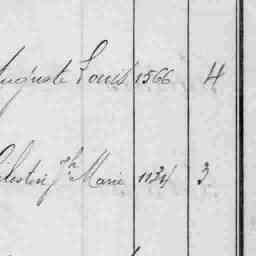 Auguste Louis 1566 4
Célestin Jph Marie 1134 3